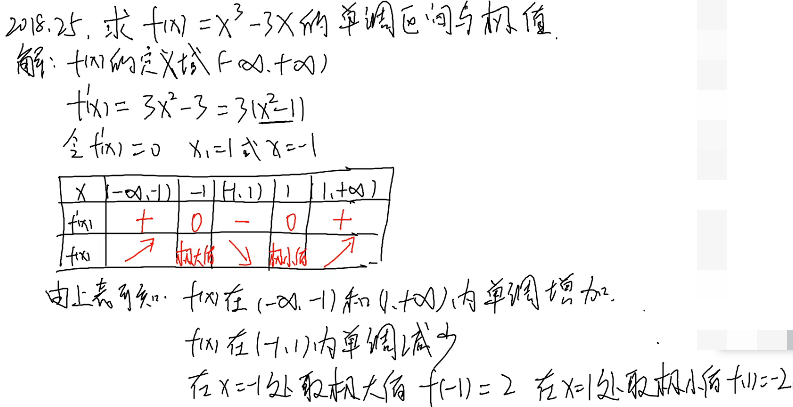 2018.25. 求 f(x)=x³-3x的单调区间与极值.
解: f(x)的定义域(-∞.+∞)
f'(x)=3x²-3=3(x²-1)
令f'(x)=0 x₁=1或x=-1
x (-∞,-1) -1 (-1,1) 1 (1,+∞)
f'(x) + 0 - 0 +
f(x) ↗ 极大值 ↘ 极小值 ↗
由上表可知: f(x)在(-∞.-1)和(1.+∞)内单调增加.
f(x)在(-1,1)内单调减少
在x=-1处取极大值 f(-1)=2 在x=1处取极小值f(1)=-2